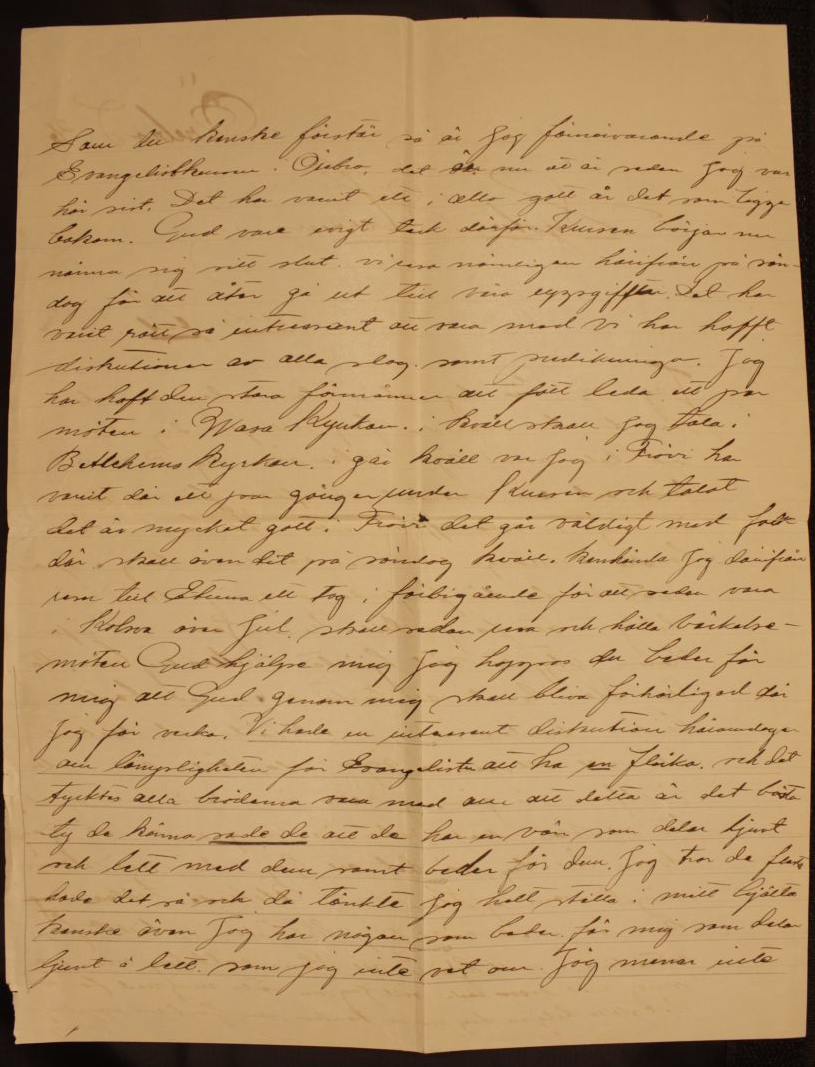 Som du kanske förstår så är jag förnärvarande på
Evangelistkursen i Örebro, det är nu ett år sedan jag var
här sist. Det har varit ett i allo gott år det som ligger
bakom. Gud vare evigt tack därför. Kursen börjar nu
närma sig sitt slut. vi resa nämligen härifrån på sön-
dag för att åter gå ut till våra uppgifter. Det har
varit rätt så intressant att vara med vi har hafft
diskutioner av alla slag. samt predikningar. Jag
har haft den stora förmånen att fått leda ett par
möten i Wasa Kyrkan. i kväll skall jag tala i
Betlehems Kyrkan. i går kväll var jag i Frövi har
varit där ett par gånger under Kursen och talat
det är mycket gott i Frövi det går väldigt med folk
där skall även dit på söndag kväll. kanhända jag därifrån
resa till Etuna ett tag i förbigående för att sedan vara
i Kolsva över Jul. skall sedan resa och hålla väckelse-
möten Gud hjälpe mig jag hoppas du beder för
mig att Gud genom mig skall bliva förhärligad där
jag får verka. Vi hade en intressant diskution häromdagen
om lämpligheten för Evangelister att ha en flicka. och det
tycktes alla bröderna vara med om att detta är det bästa
ty de känna sade de att de har en vän som delar ljuvt
och lett med dem samt beder för dem. Jag tror de flesta
hade det så och då tänkte jag helt stilla i mitt hjärta
kanske även jag har någon som beder för mig som delar
ljuvt å lett. som jag inte vet om. Jag menar inte